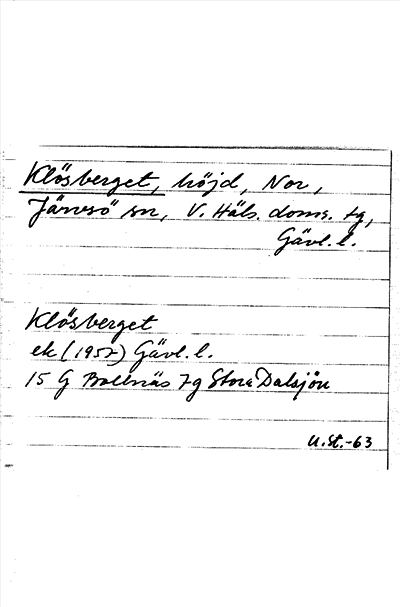 Klösberget, höjd, Nor,
Järvsö sn, V. Häls. doms. tg,
Gävl. l.
Klösberget
ek (1957) Gävl. l.
15 G Bollnäs 7g Stora Dalsjön
U.St.-63